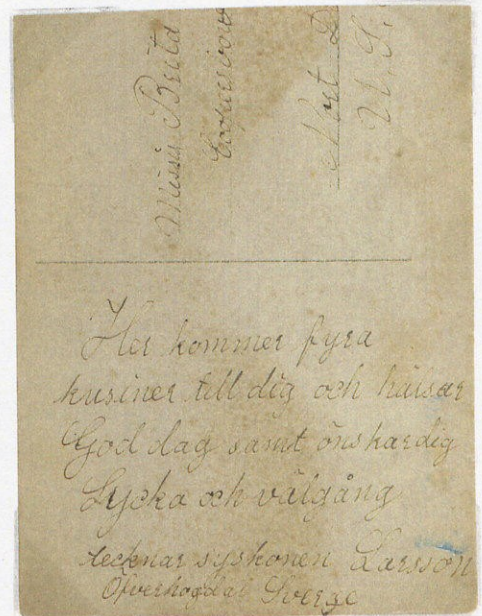 Missis
Nort D
U. S.
Her kommer fyra
kusiner till dig och hälsar
God dag samt önskar dig
Lycka och välgång
tecknar syskonen Larsson
Öfverhogdal Sverge